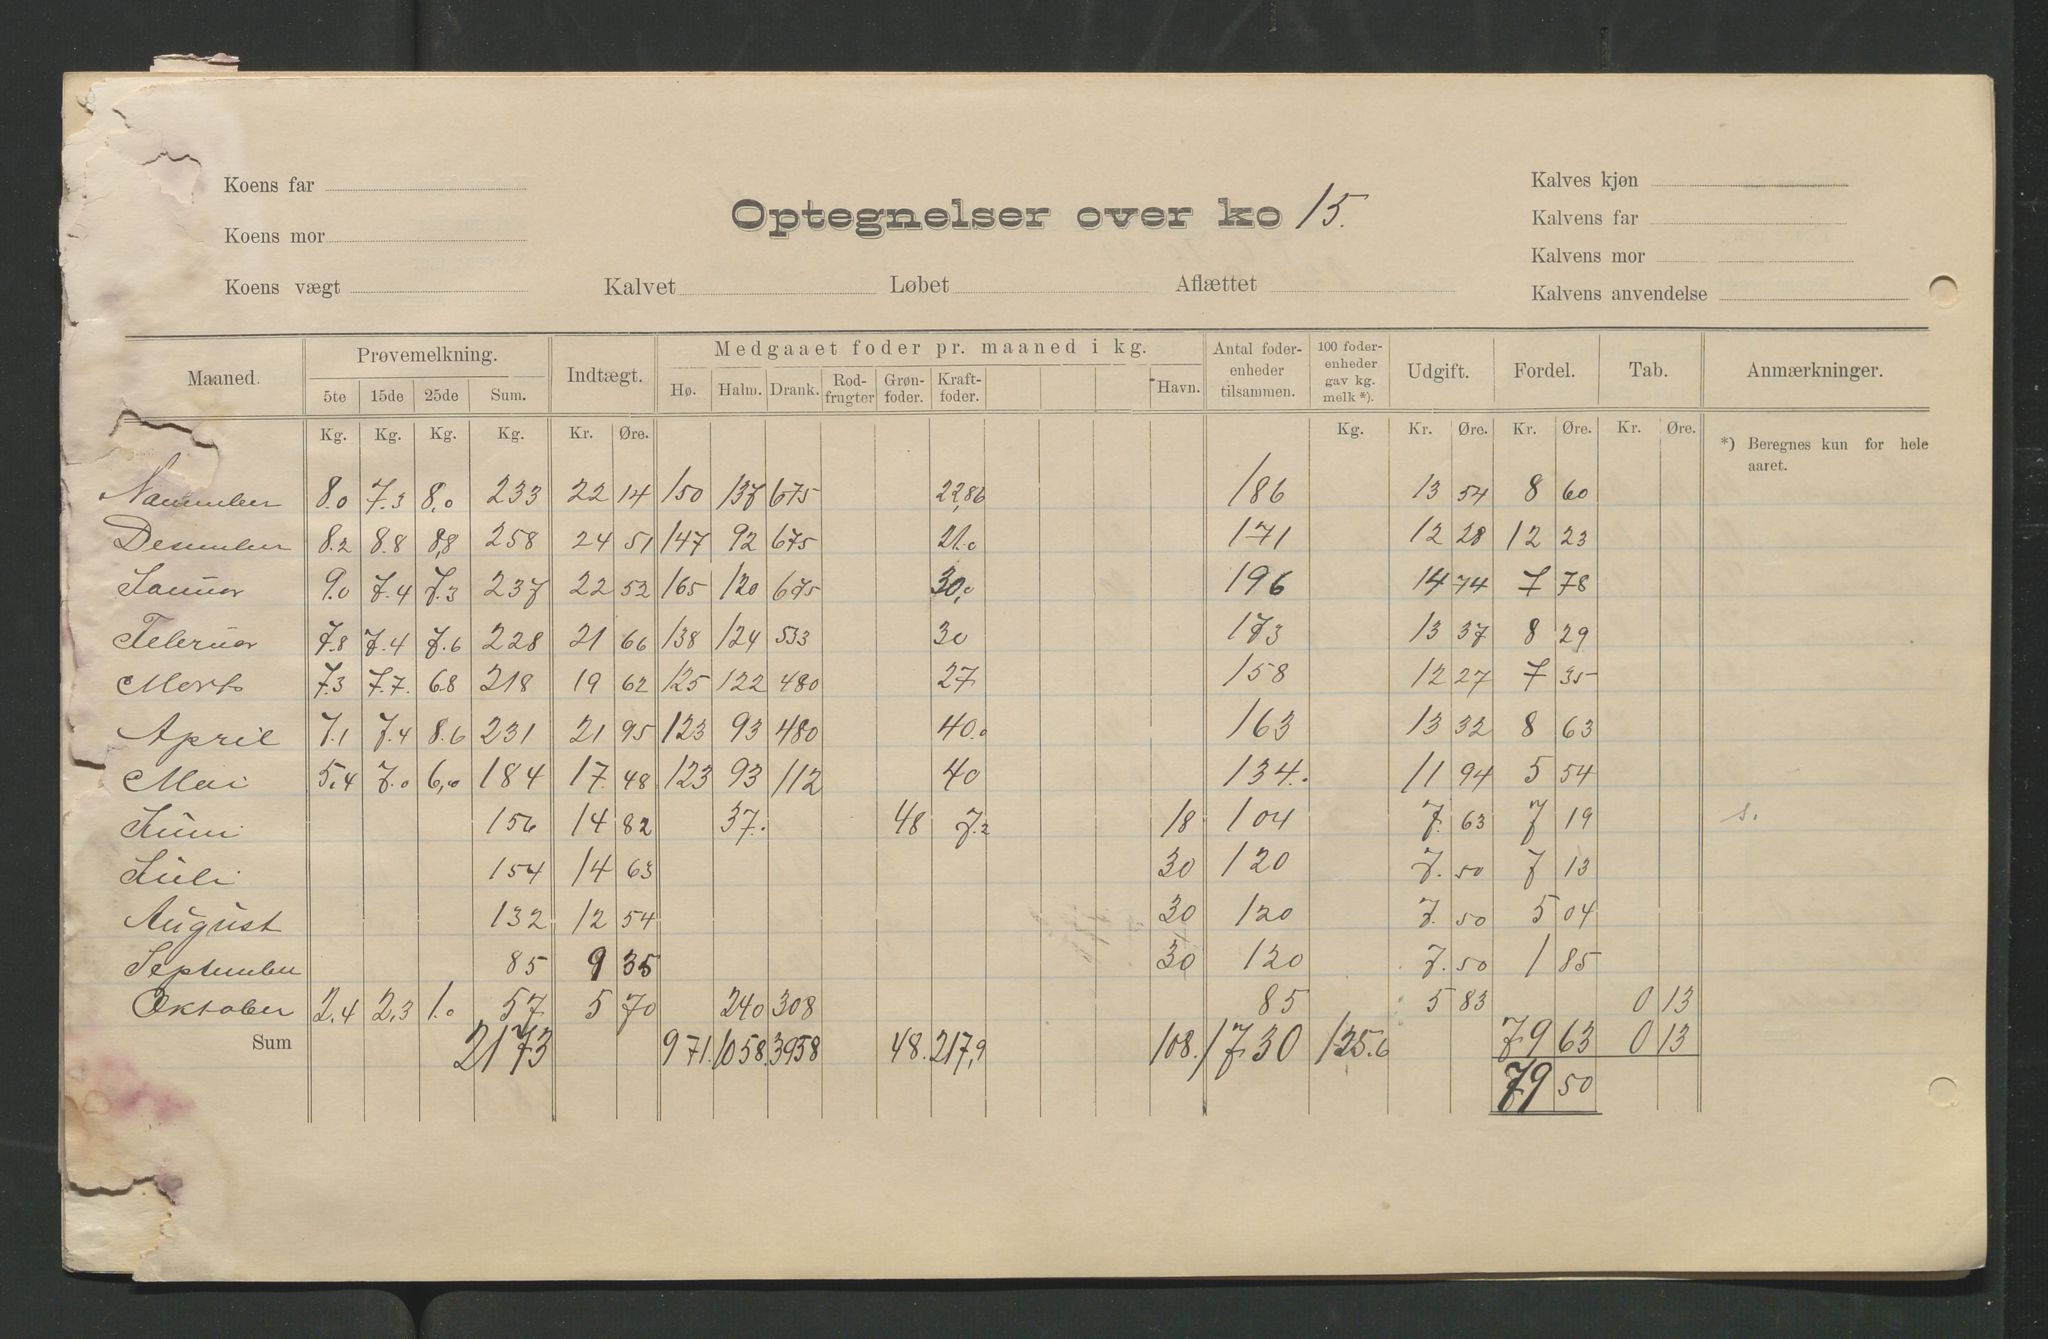 Koens far
Koens mor
Koens vægt
Optegnelser over ko 15.
Kalvet Løbet Aflættet
Kalves kjøn
Kalvens far
Kalvens mor
Kalvens anvendelse
Maaned. Prøvemelkning. Indtægt. Medgaaet foder pr. maaned i kg. Antal foder-enheder tilsammen. 100 foder-enheder gav kg. melk *). Udgift. Fordel. Tab. Anmærkninger.
5te 15de 25de Sum. Hø. Halm. Drank. Rod-frugter Grøn-foder. Kraft-foder. Havn.
Kg. Kg. Kg. Kg. Kr. Øre. Kg. Kr. Øre. Kr. Øre. Kr. Øre. *) Beregnes kun for hele aaret.
November 8.0 7.3 8.0 233 22 14 150 137 675 22,86 186 13 54 8 60
Desember 8.2 8.8 8,8 258 24 51 147 92 675 21.0 171 12 28 12 23
Januar 9.0 7.4 7.3 237 22 52 165 120 675 30,0 196 14 74 7 78
Februar 7.8 7.4 7.6 228 21 66 138 124 533 30 173 13 37 8 29
Marts 7.3 7.7. 6.8 218 19 62 125 122 480 27 158 12 27 7 35
April 7.1 7.4 8.6 231 21 95 123 93 480 40.0 163 13 32 8 63
Mai 5.4 7.0 6,0 184 17. 48 123 93 112 40 134. 11 94 5 54
Juni 156 14 82 37. 48 7.2 18 104 7. 63 7 19 s.
Juli 154 14 63 30 120 7. 50 7 13
August 132 12 54 30 120 7. 50 5 04
September 85 9 35 30 120 7. 50 1 85
Oktober 2.4 2.3 1.0 57 5 70 240 308 85 5 83 0 13
Sum 2173 971. 1058. 3958 48. 217,9 108. 1730 125.6 79 63 0 13
79 50